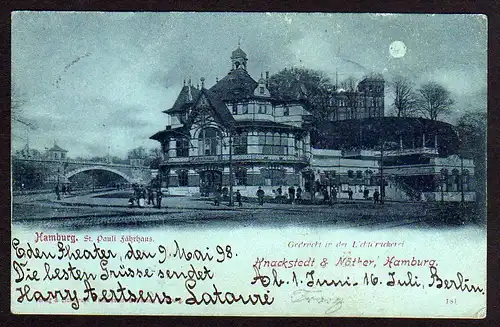 Hamburg. St. Pauli Fährhaus.
Gedruckt in der Lichtdruckerei
Knackstedt & Näther, Hamburg.
Eden Theater, den 9. Mai 98.
Die besten Grüsse sendet
Harry Aertsens-Lataure
Ab 1. Juni - 16. Juli, Berlin
181